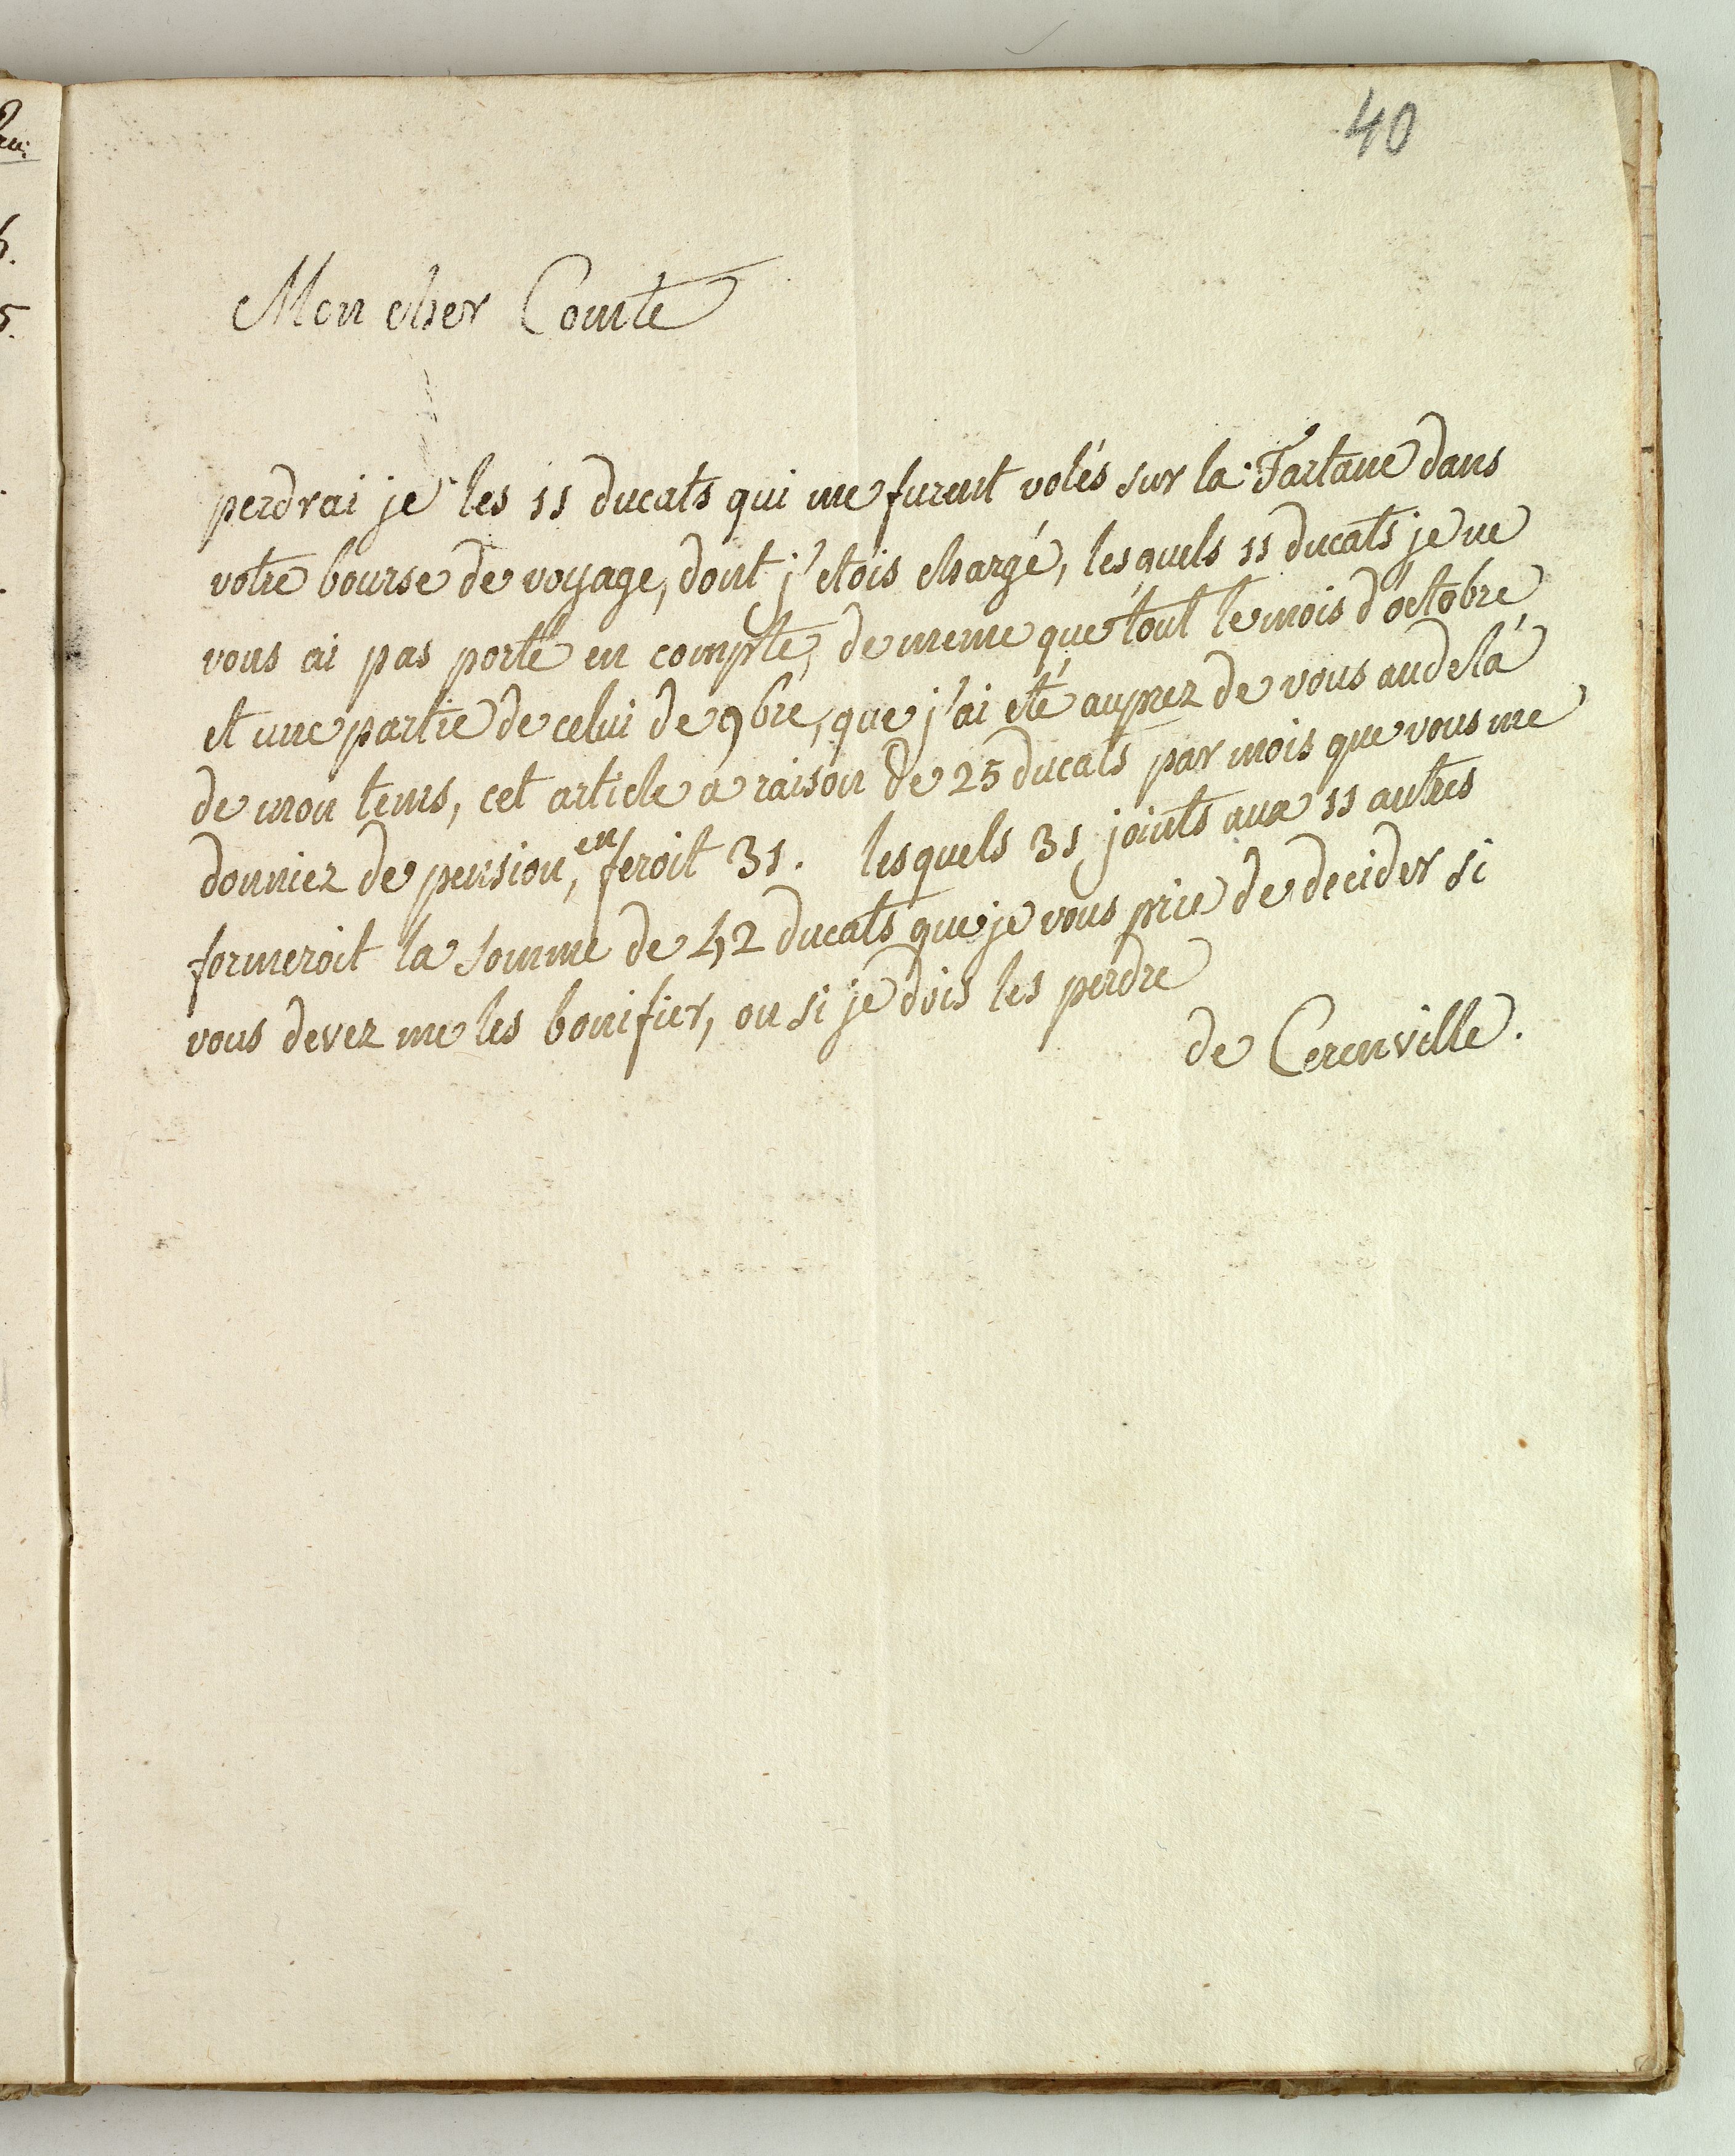 40
Mon cher Comte
perdrai je les 11 ducats qui me furent volés sur la Tartane dans
votre bourse de voyage, dont j'etois chargé, lesquels 11 ducats je ne
vous ai pas porté en compte, de meme que tout le mois d'octobre
et une partie de celui de 9bre, que j'ai eté auprez de vous audelà
de mon tems, cet article a raison de 25 ducats par mois que vous me
donniez de pension, en feroit 31. lesquels 31 joints aux 11 autres
formeroit la somme de 42 ducats que je vous prie de decider si
vous devez me les bonifier, ou si je dois les perdre
de Cerenville.